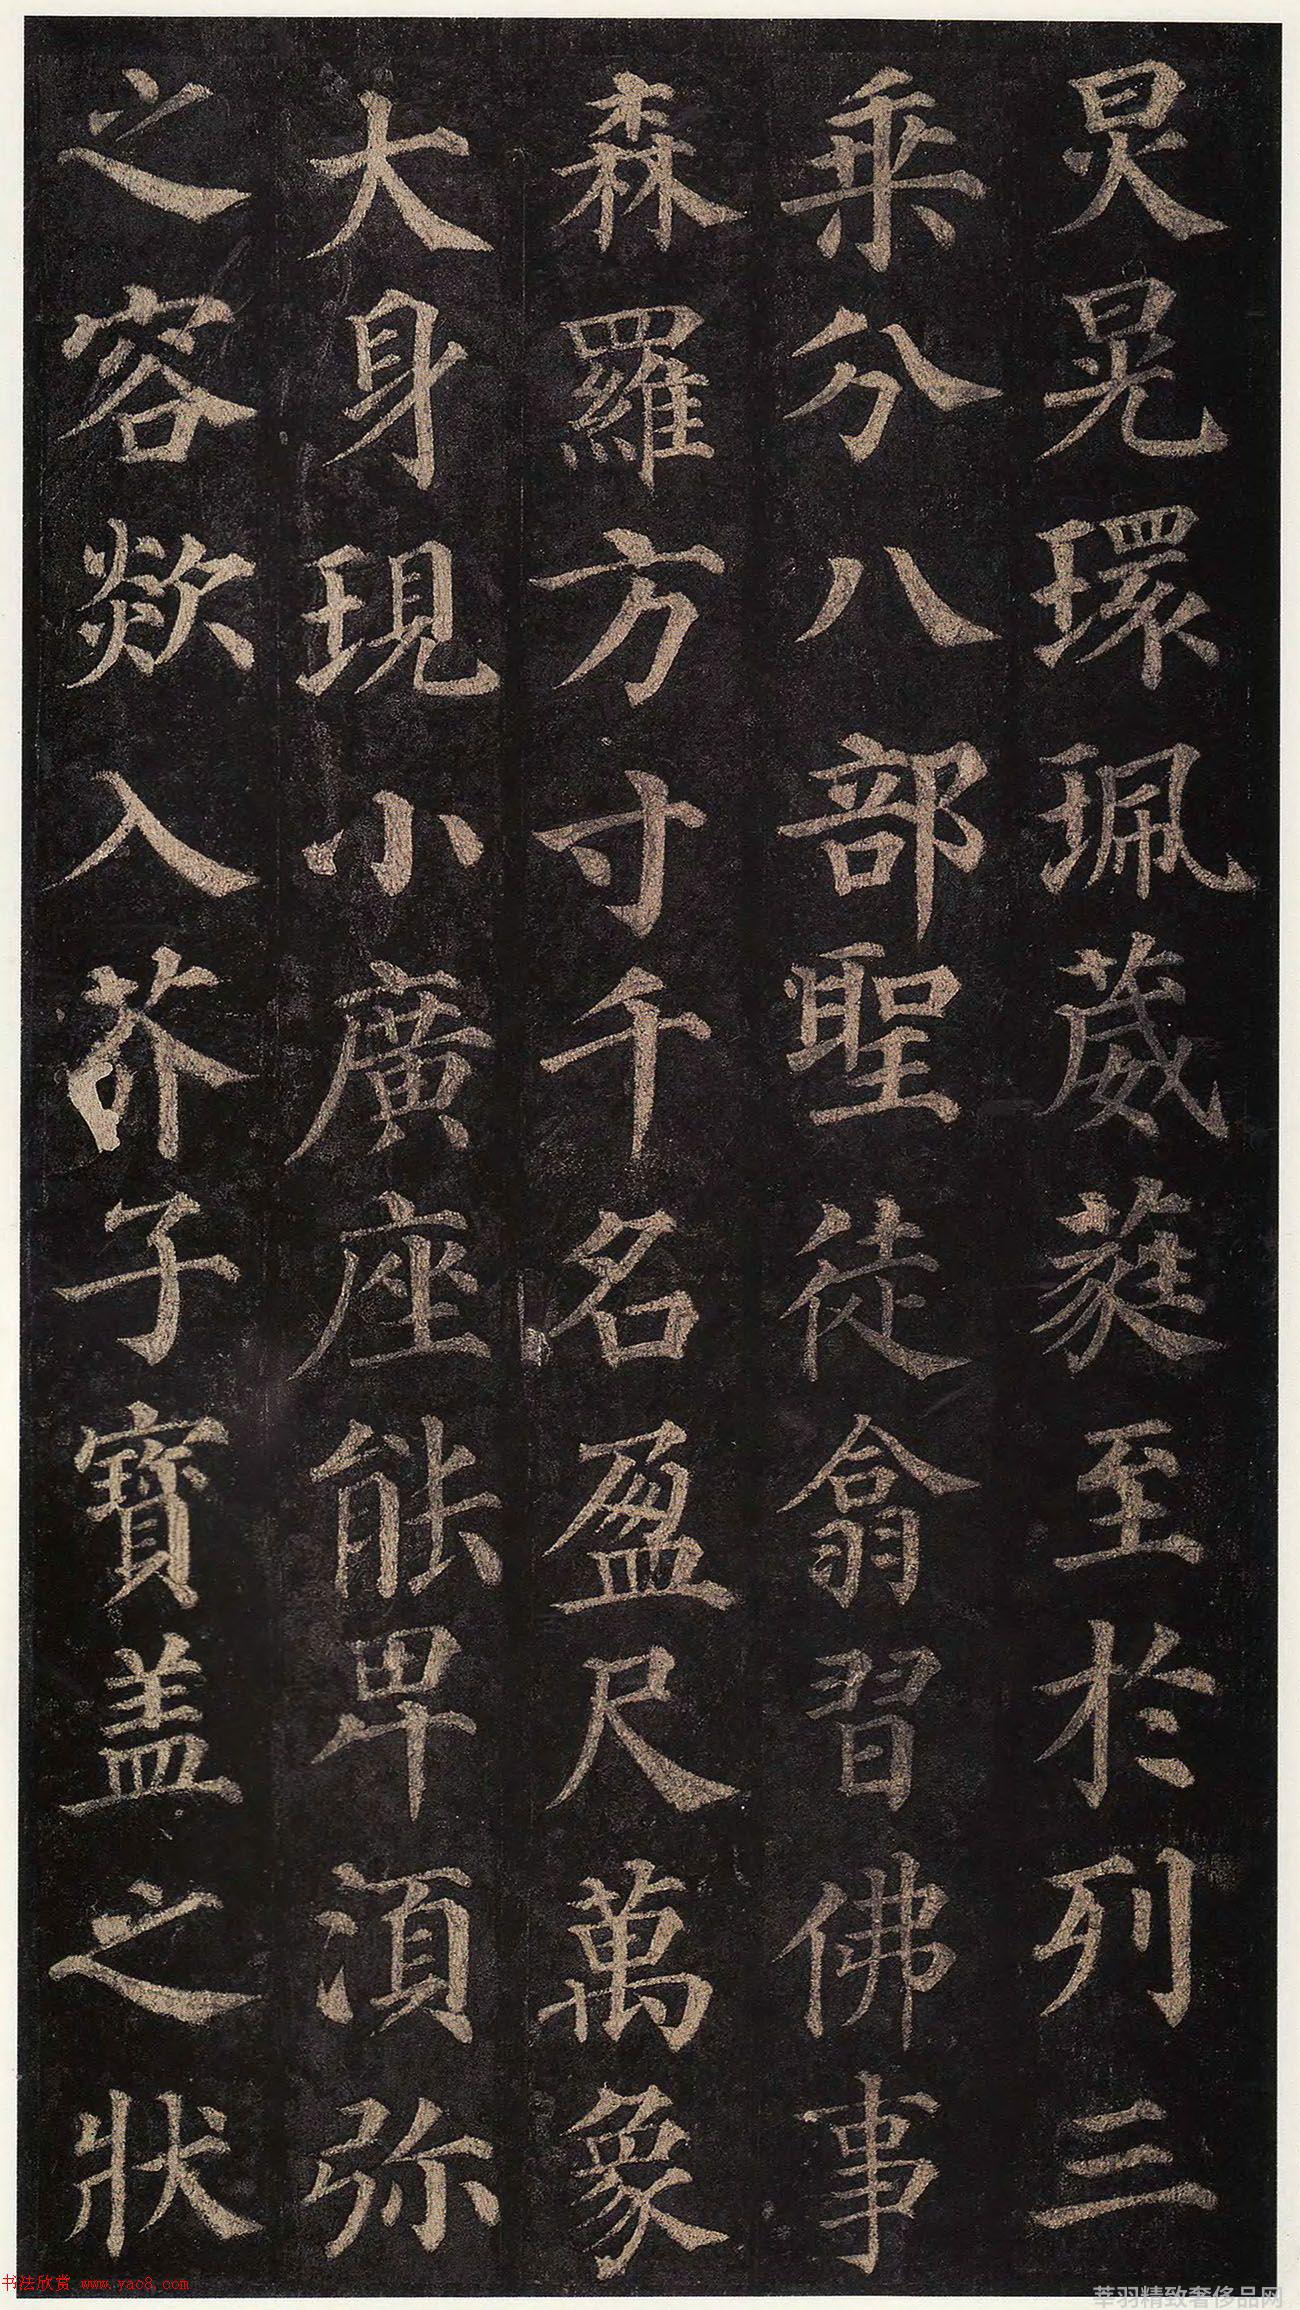 炅晃環珮葳蕤至於列三
乘分八部聖徒翕習佛事
森羅方寸千名盈尺萬象
大身現小廣座能卑須弥
之容欻入芥子寶盖之狀
书法欣赏 www.yac8.com
莘羽精致奢侈品网